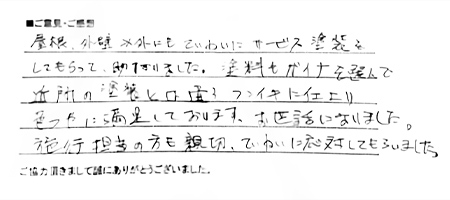 ■ご意見・ご感想
屋根、外壁以外にもていねいにサービス塗装を
してもらって、助かりました。塗料もガイナを選んで
近所の塗装とは違うペンキに仕上り
とても満足しております。お世話になりました。
施行担当の方も親切、ていねいに応対してもらいました。
ご協力頂きまして誠にありがとうございました。